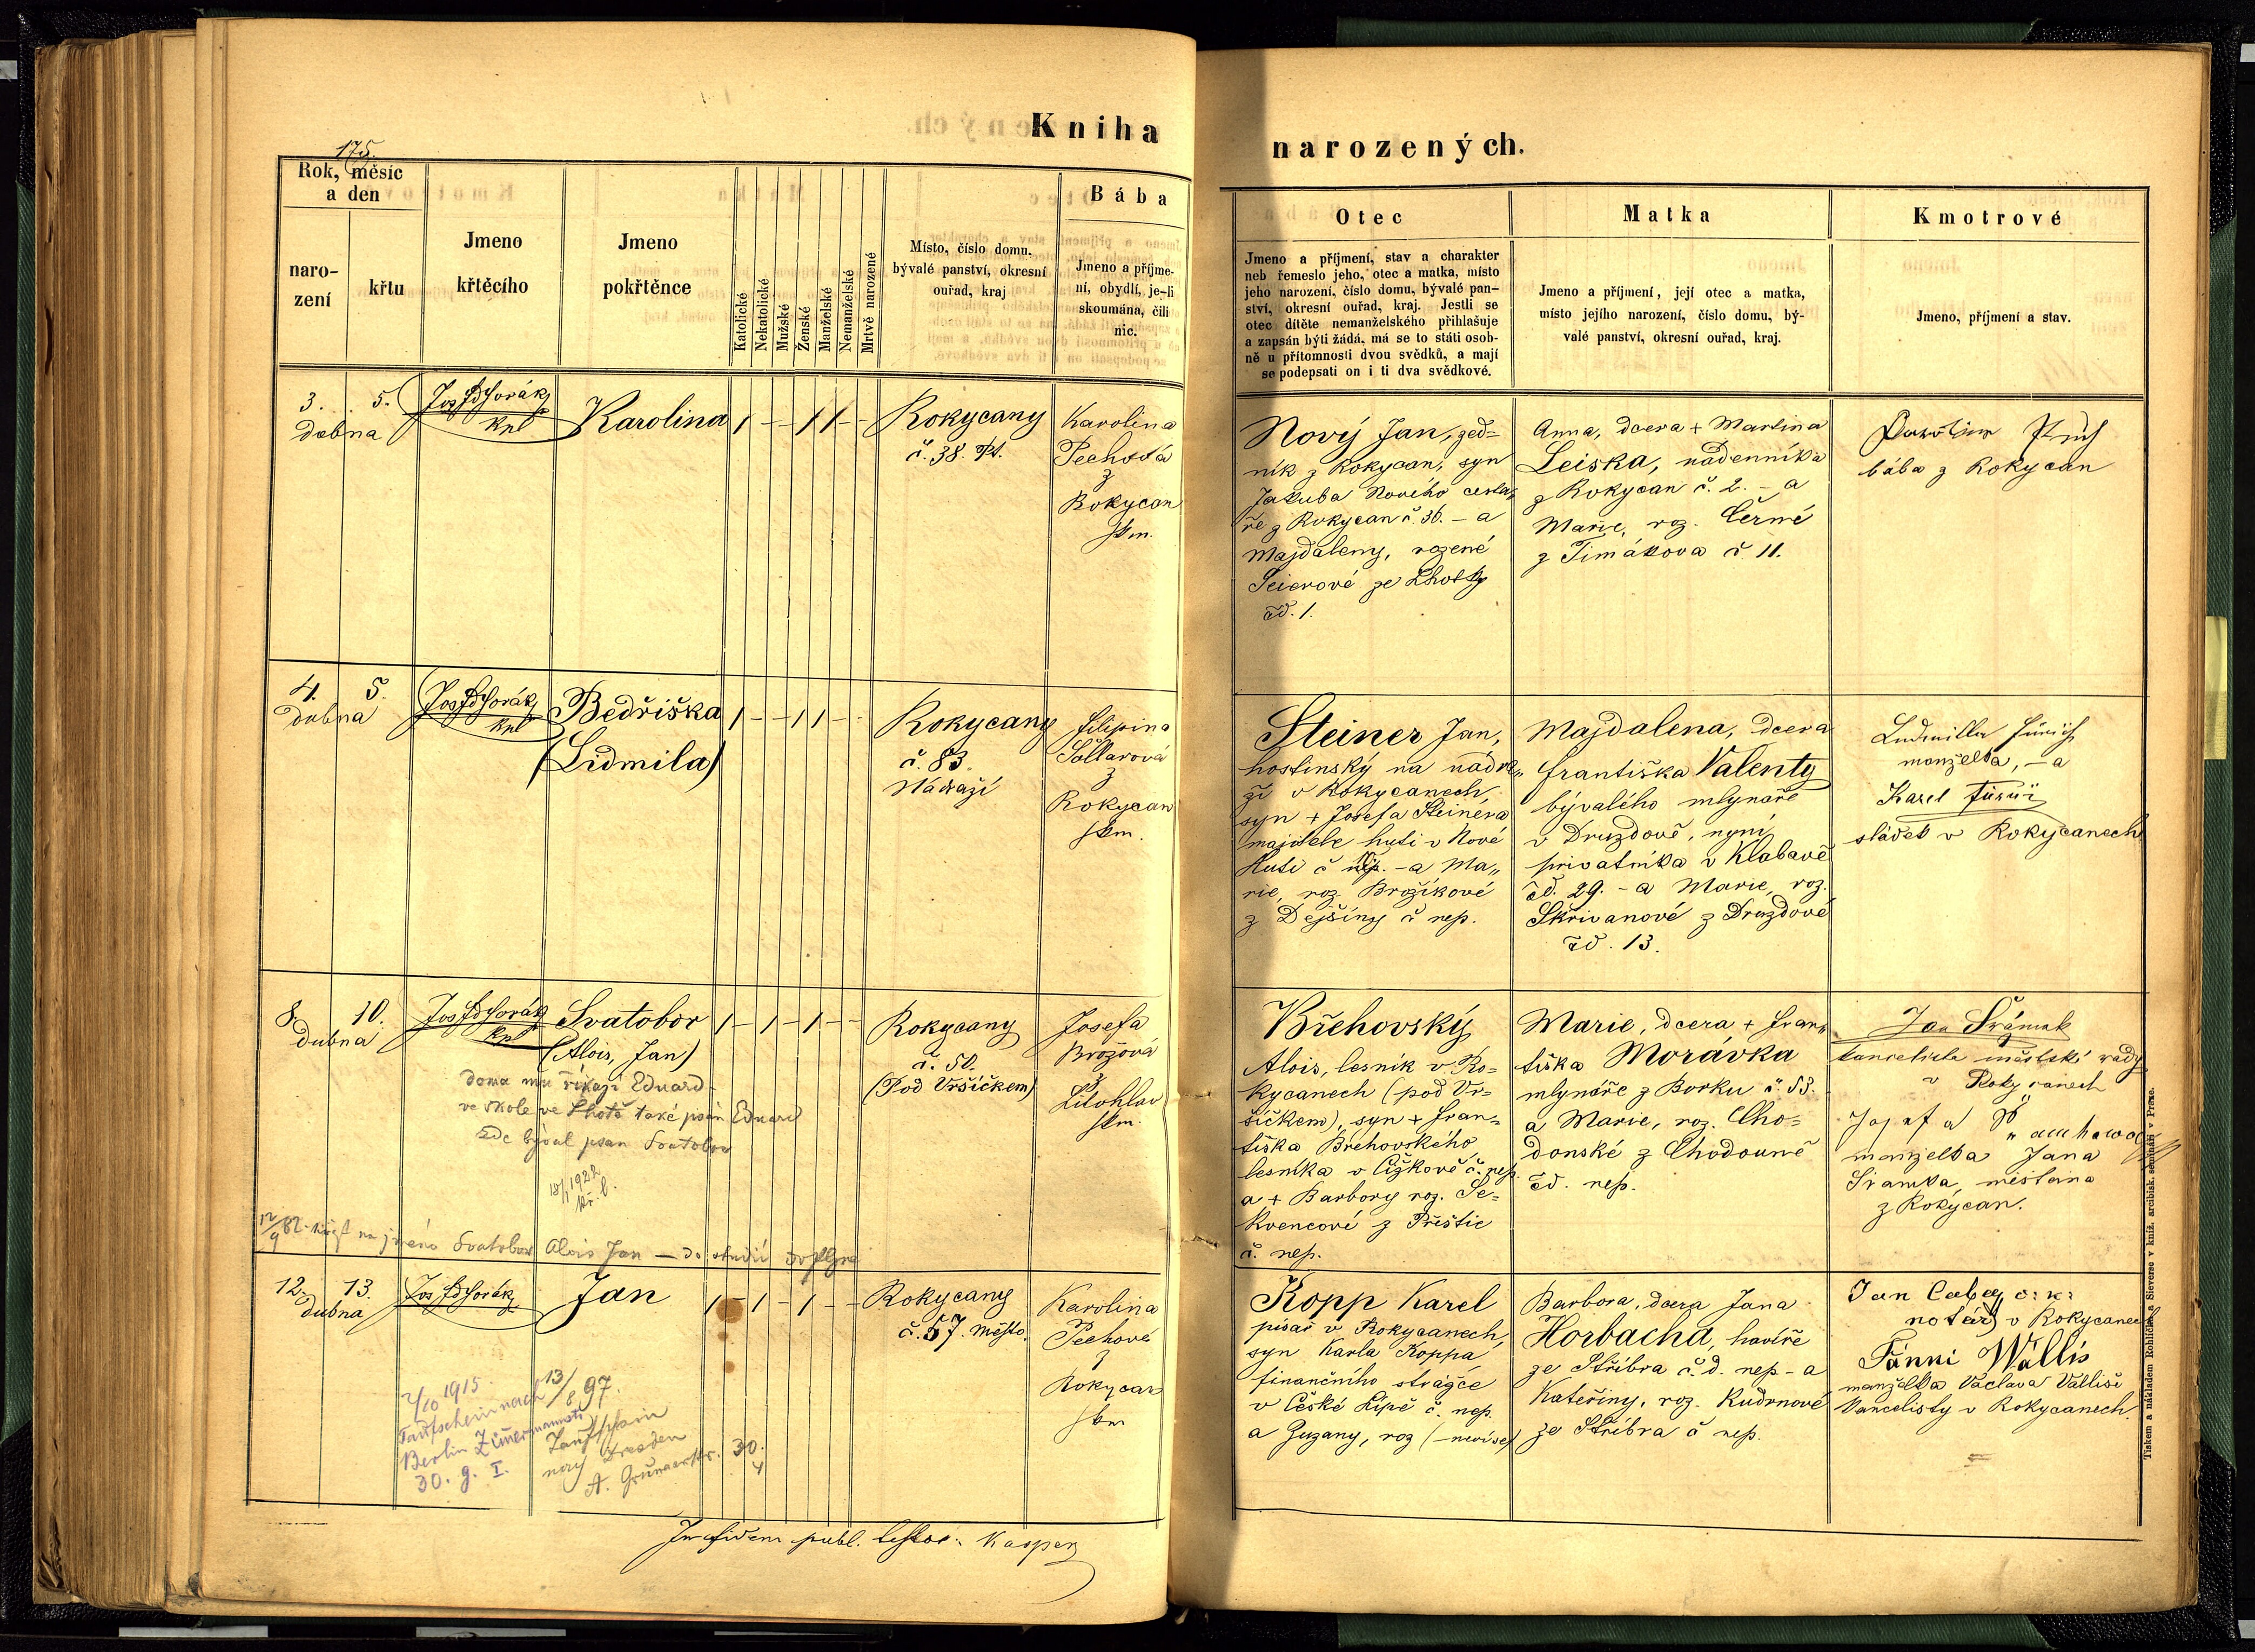 Kniha
narozených.
175.
Rok, měsíc
a den
naro-
zení
křtu
Jmeno
křtěcího
Jmeno
pokřtěnce
Katolické
Nekatolické
Mužské
Ženské
Manželské
Nemanželské
Mrtvě narozené
Místo, číslo domu,
bývalé panství, okresní
ouřad, kraj
Bába
Jmeno a příjme-
ní, obydlí, je-li
skoumána, čili
nic.
Otec
Jmeno a příjmení, stav a charakter
neb řemeslo jeho, otec a matka, místo
jeho narození, číslo domu, bývalé pan-
ství, okresní ouřad, kraj. Jestli se
otec dítěte nemanželského přihlašuje
a zapsán býti žádá, má se to státi osob-
ně u přítomnosti dvou svědků, a mají
se podepsati on i ti dva svědkové.
Matka
Jmeno a příjmení, její otec a matka,
místo jejího narození, číslo domu, bý-
valé panství, okresní ouřad, kraj.
Kmotrové
Jmeno, příjmení a stav.
3. 5.
dubna
Jos. Dvořák
kpl
Karolina
1 – – 1 1 – –
Rokycany
č. 38. Př.
Karolina
Pechová
z
Rokycan
zkm.
Nový Jan, zed=
ník z Rokycan, syn
Jakuba Nového cesta=
ře z Rokycan č. 36. – a
Majdaleny, rozené
Seierové ze Lhotky
čd. 1.
Anna, dcera + Martina
Leiska, nádenníka
z Rokycan č. 2. – a
Marie, roz. Černé
z Timákova č 11.
bába z Rokycan
4. 5.
dubna
Jos. Dvořák
kpl
Bedřiška
(Lidmila)
1 – – 1 1 – –
Rokycany
č. 83.
Nádraží
Filipina
Sollarová
z
Rokycan
zkm.
Steiner Jan,
hostinský na nádra„
ží v Rokycanech
syn + Josefa Steinera
majitele huti v Nové
Huti č nep. – a Ma„
rie, roz. Brožíkové
z Dejšíny č nep.
Majdalena, dcera
Františka Valenty
bývalého mlynáře
v Druzdově, nyní
privatníka v Klabavě
čd. 29. – a Marie, roz.
Skřivanové z Druzdové
čd. 13.
Ludmilla
manželka, – a
Karel
sládek v Rokycanech
8. 10.
dubna
Jos. Dvořák
kpl
Svatobor
(Alois, Jan)
1 – 1 – 1 – –
doma mu říkají Eduard –
ve škole ve Lhotě také psán Eduard
zde býval psán Svatobor
18/1 1922
kř. l.
12/9 82 křest na jméno Svatobor Alois Jan – do studií do Plzně
Rokycany
č. 50.
(Pod Vršíčkem)
Josefa
Brožová
z
Litohlav
zkm.
Břehovský
Alois, lesník v Ro=
kycanech (pod Vr=
šíčkem), syn + Fran=
tiška Břehovského
lesníka v Čížkově č. nep.
a + Barbory roz. Še=
kvencové z Přeštic
č. nep.
Marie, dcera + Fran„
tiška Morávka
mlynáře z Borku č. 53.
a Marie, roz. Cho=
donské z Chodouně
čd. nep.
Jan Šrámek
kancelista městské rady
v Rokycanech
Josefa
manželka Jana
Šramka, měšťana
z Rokycan.
12. 13.
dubna
Jos. Dvořák
Jan
1 – 1 – 1 – –
2/10 1915.
Taufschein nach
Berlin Zimermannstr.
30. g. I.
13/8 97.
Taufschein
nach Dresden
A. Grunaerstr. 30.
4
Rokycany
č. 57. město.
Karolina
Pechová
z
Rokycan
zkm
Kopp Karel
písař v Rokycanech,
syn Karla Koppa
finančního strážce
v České Lípě č. nep.
a Zuzany, roz (– neví se)
Barbora, dcera Jana
Horbacha, havíře
ze Stříbra č.d. nep – a
Kateřiny, roz. Kudrnové
ze Stříbra č nep.
Jan
notář v Rokycanech
Fánni Wallis
manželka Václava Valliše
kancelisty v Rokycanech.
In fidem publ. testor: Kasper
Tiskem a nákladem Rohlíčka a Sieverse v kníž. arcibisk. semináři v Praze.